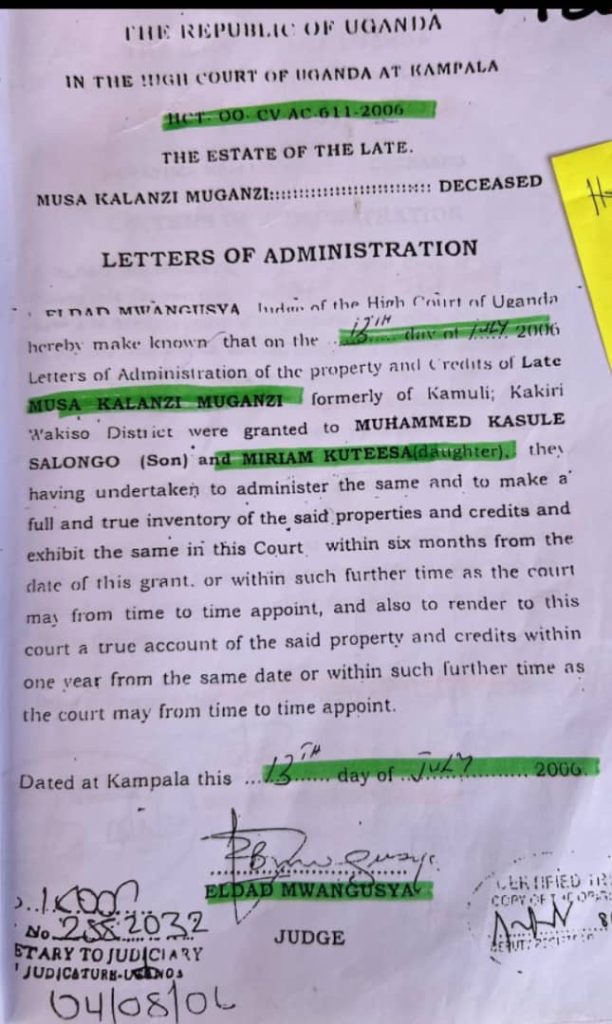 THE REPUBLIC OF UGANDA
IN THE HIGH COURT OF UGANDA AT KAMPALA
HCT- OO- CV-AC-611-2006
THE ESTATE OF THE LATE.
MUSA KALANZI MUGANZI:::::::::::::::::::::::::::: DECEASED
LETTERS OF ADMINISTRATION
ELDAD MWANGUSYA Judge of the High Court of Uganda
hereby make known that on the ..13TH.... day of JULY 2006
Letters of Administration of the property and Credits of Late
MUSA KALANZI MUGANZI formerly of Kamuli; Kakiri
Wakiso District were granted to MUHAMMED KASULE
SALONGO (Son) and MIRIAM KUTEESA(daughter), they
having undertaken to administer the same and to make a
full and true inventory of the said properties and credits and
exhibit the same in this Court within six months from the
date of this grant. or within such further time as the court
may from time to time appoint, and also to render to this
court a true account of the said property and credits within
one year from the same date or within such further time as
the court may from time to time appoint.
Dated at Kampala this ...13TH...... day of ..JULY.......... 2006.
ELDAD MWANGUSYA
JUDGE
CERTIFIED
COPY OF
No.
TARY TO JUDICIARY
JUDICATURE-
04/08/06